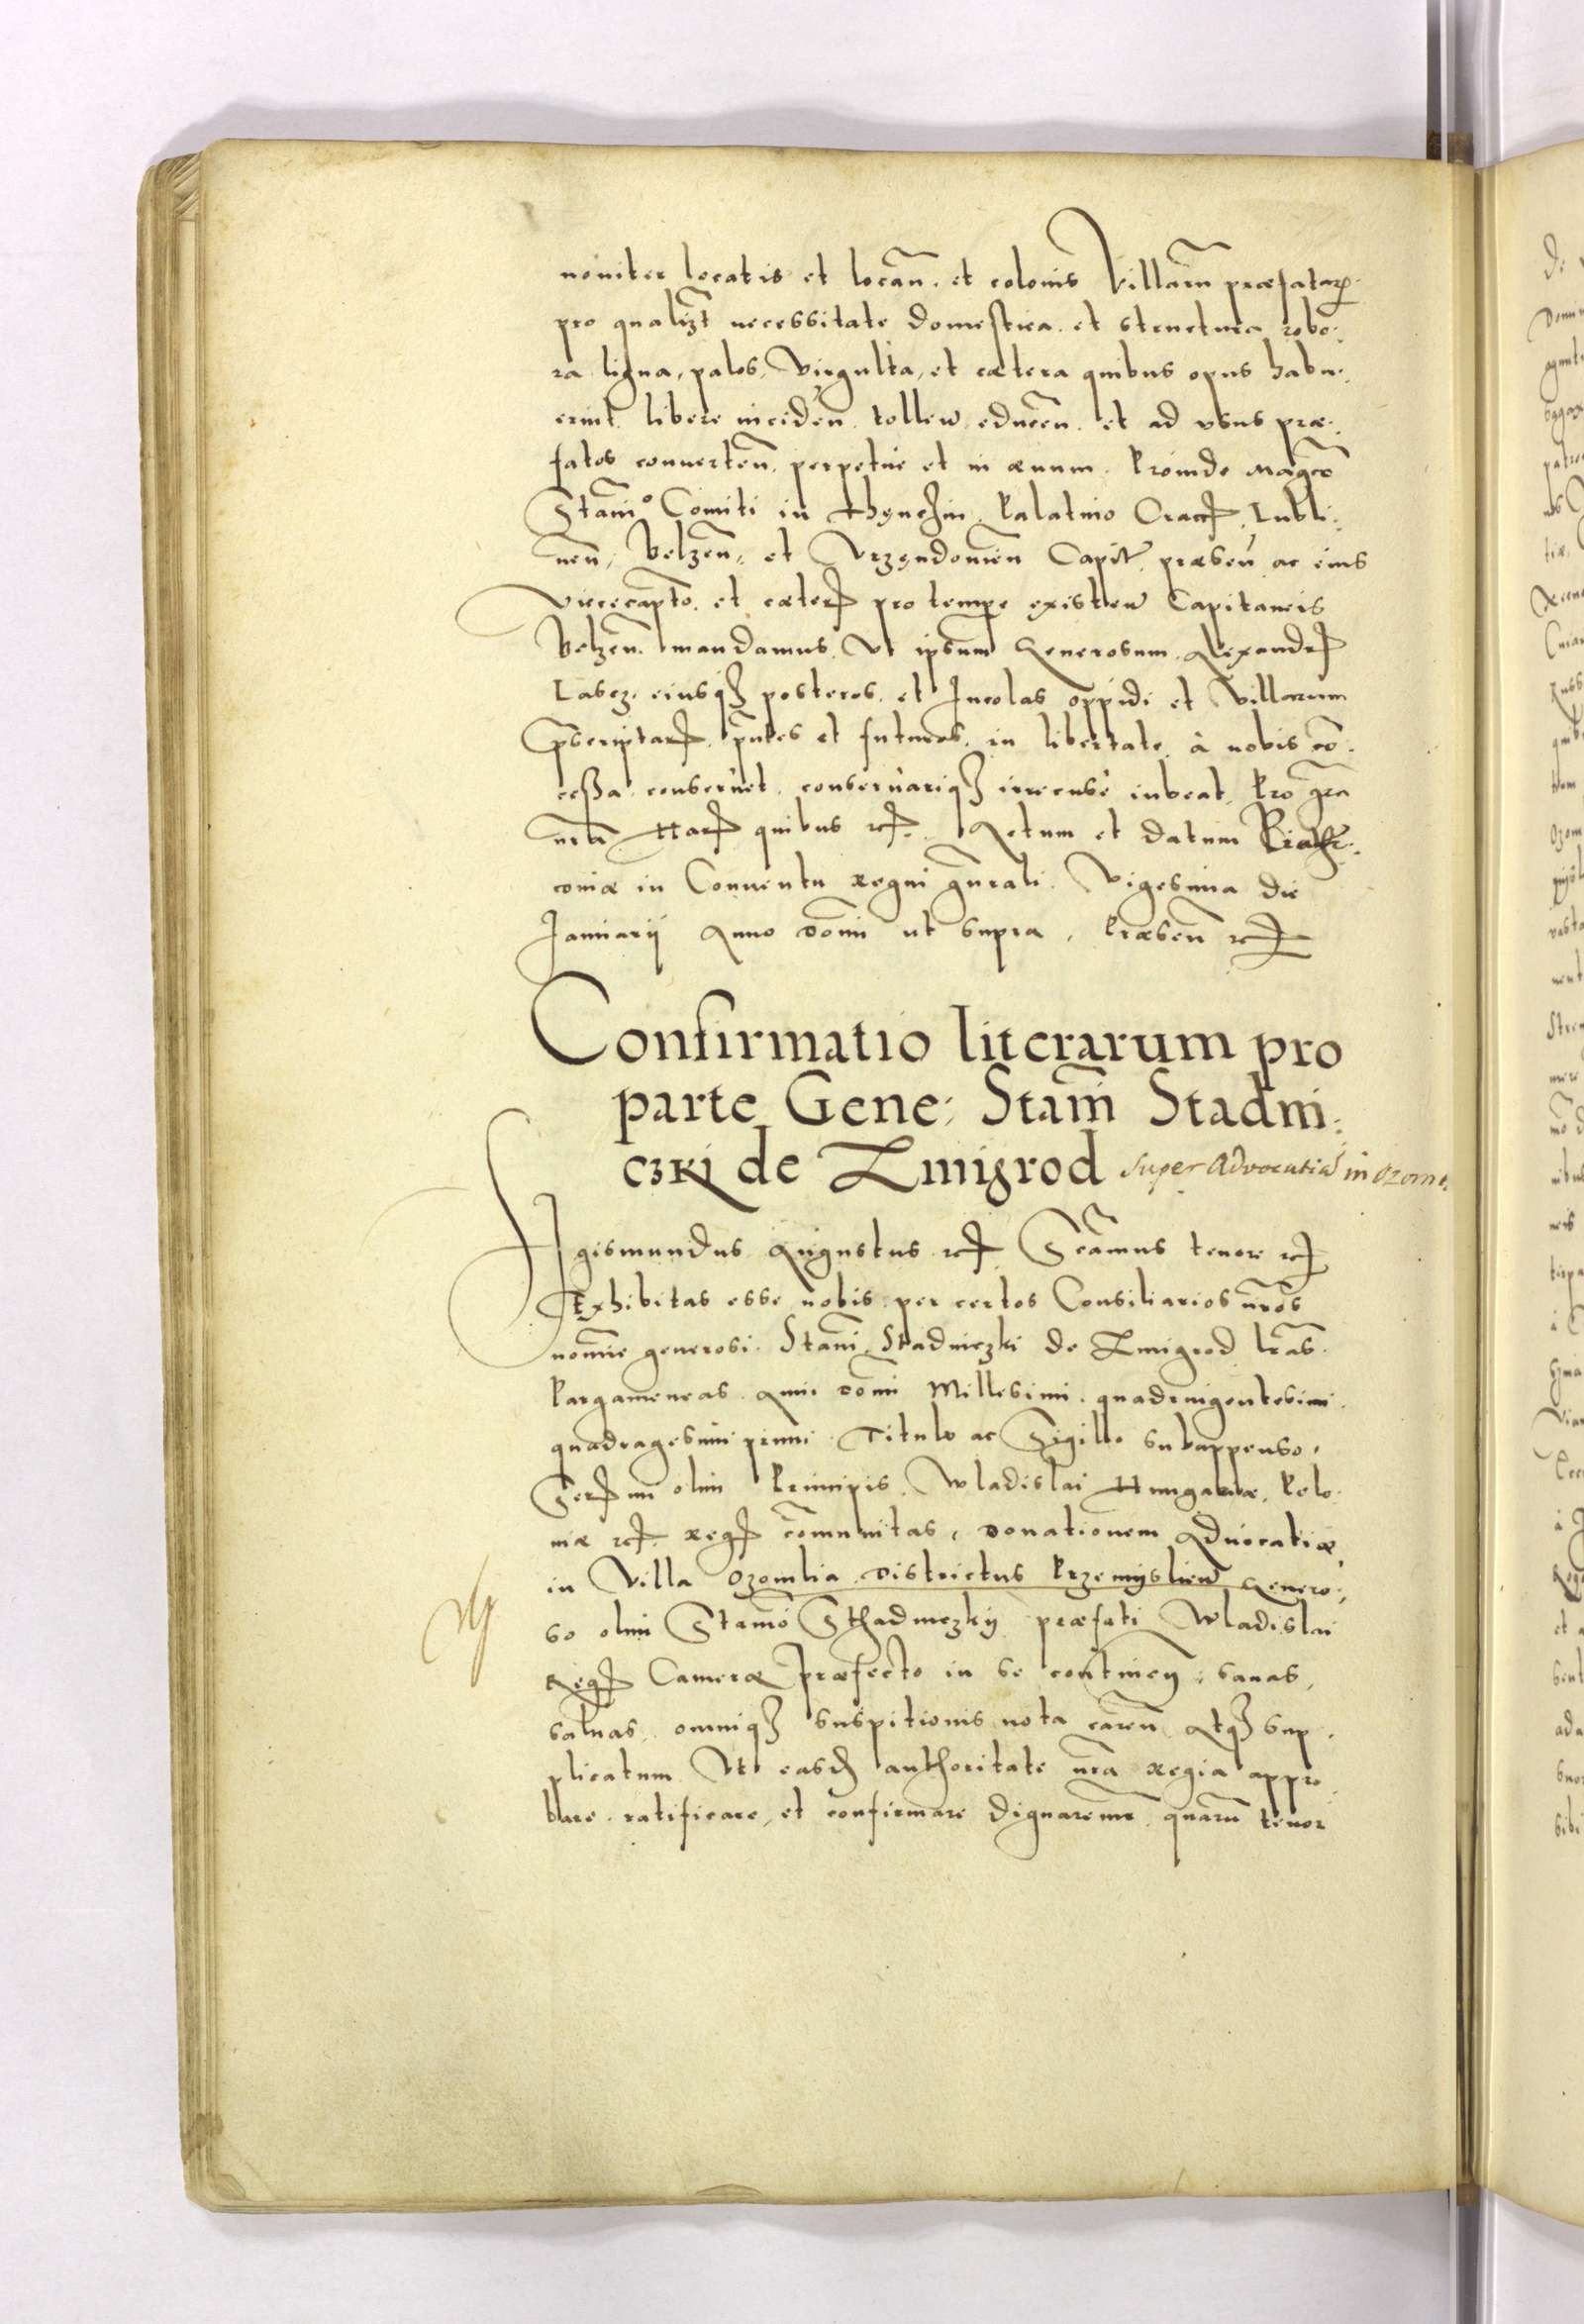 noviter locatis et locan̄. et colonis Villarū præfatarꝫ
pro qualizt necessitate domestica et structura, robo:
ra ligna, palos, Virgulta, et cætera quibus opus habu:
erint libere inciden̄. tollen̄ educen̄. et ad vsus præ:
fatos conuerten̄. perpetue et in æuum. Proinde Mag̅co
Stanis° Comiti in Thęnczin, Palatino Cracꝭ, Lubli:
nen̄, Belzen̄, et Vrzędouien̄ Capit̄. præsen̄ ac eius
Vicecap̄to. et cæterꝭ pro tempe existen̄ Capitaneis
Belzen̄. mandamus. Vt ipsum Generosum Alexandrꝭ
Lascz. eiusqꝫ posteros. et Incolas oppidi et Villarum
p̄scriptarꝭ. p̄ntes et futuros. in libertate à nobis cō:
cessa conseruet. conseruariqꝫ irrecusè iubeat, Pro gr̄a
nr̄a Harꝭ quibus rcꝭ. Actum et datum Piothr:
couiæ in Conuentu Regni gn̄rali. Vigesima die
Januarij Anno Domī ut supra, Præsen̄ rcꝭ
Confirmatio literarum pro
parte Gene: Stanī Stadni:
cꝫki de Zmigrod Super Advocatiā in Ozomł.
SIgismundus Augustus rcꝭ. Sc̄amus tenore rcꝭ
Exhibitas esse nobis per certos Consiliarios nr̄os
nomīe generosi. Stanī Stadniczki de Zmigrod lr̄as.
Pargameneas Anni Domī Millesimi. quadringentesimi.
quadragesimi primi. Titulo ac Sigillo subappenso,
Serꝭmi olim Principis. Wladislai Hungariæ. Polo
niæ rcꝭ. Regꝭ cōmunitas, Donationem Aduocatiæ
in Villa Ozomlia Districtus Przemyslien̄ Genero:
so olim Stan̄o Sthadniczkij præfati Wladislai
Regꝭ Cameræ Præfecto in se continen̄, sanas,
saluas, omniqꝫ suspitionis nota caren̄ Atqꝫ sup
plicatum Vt easdꝫ authoritate nr̄a Regia appro
bare. ratificare, et confirmare dignaremur. quarū tenor